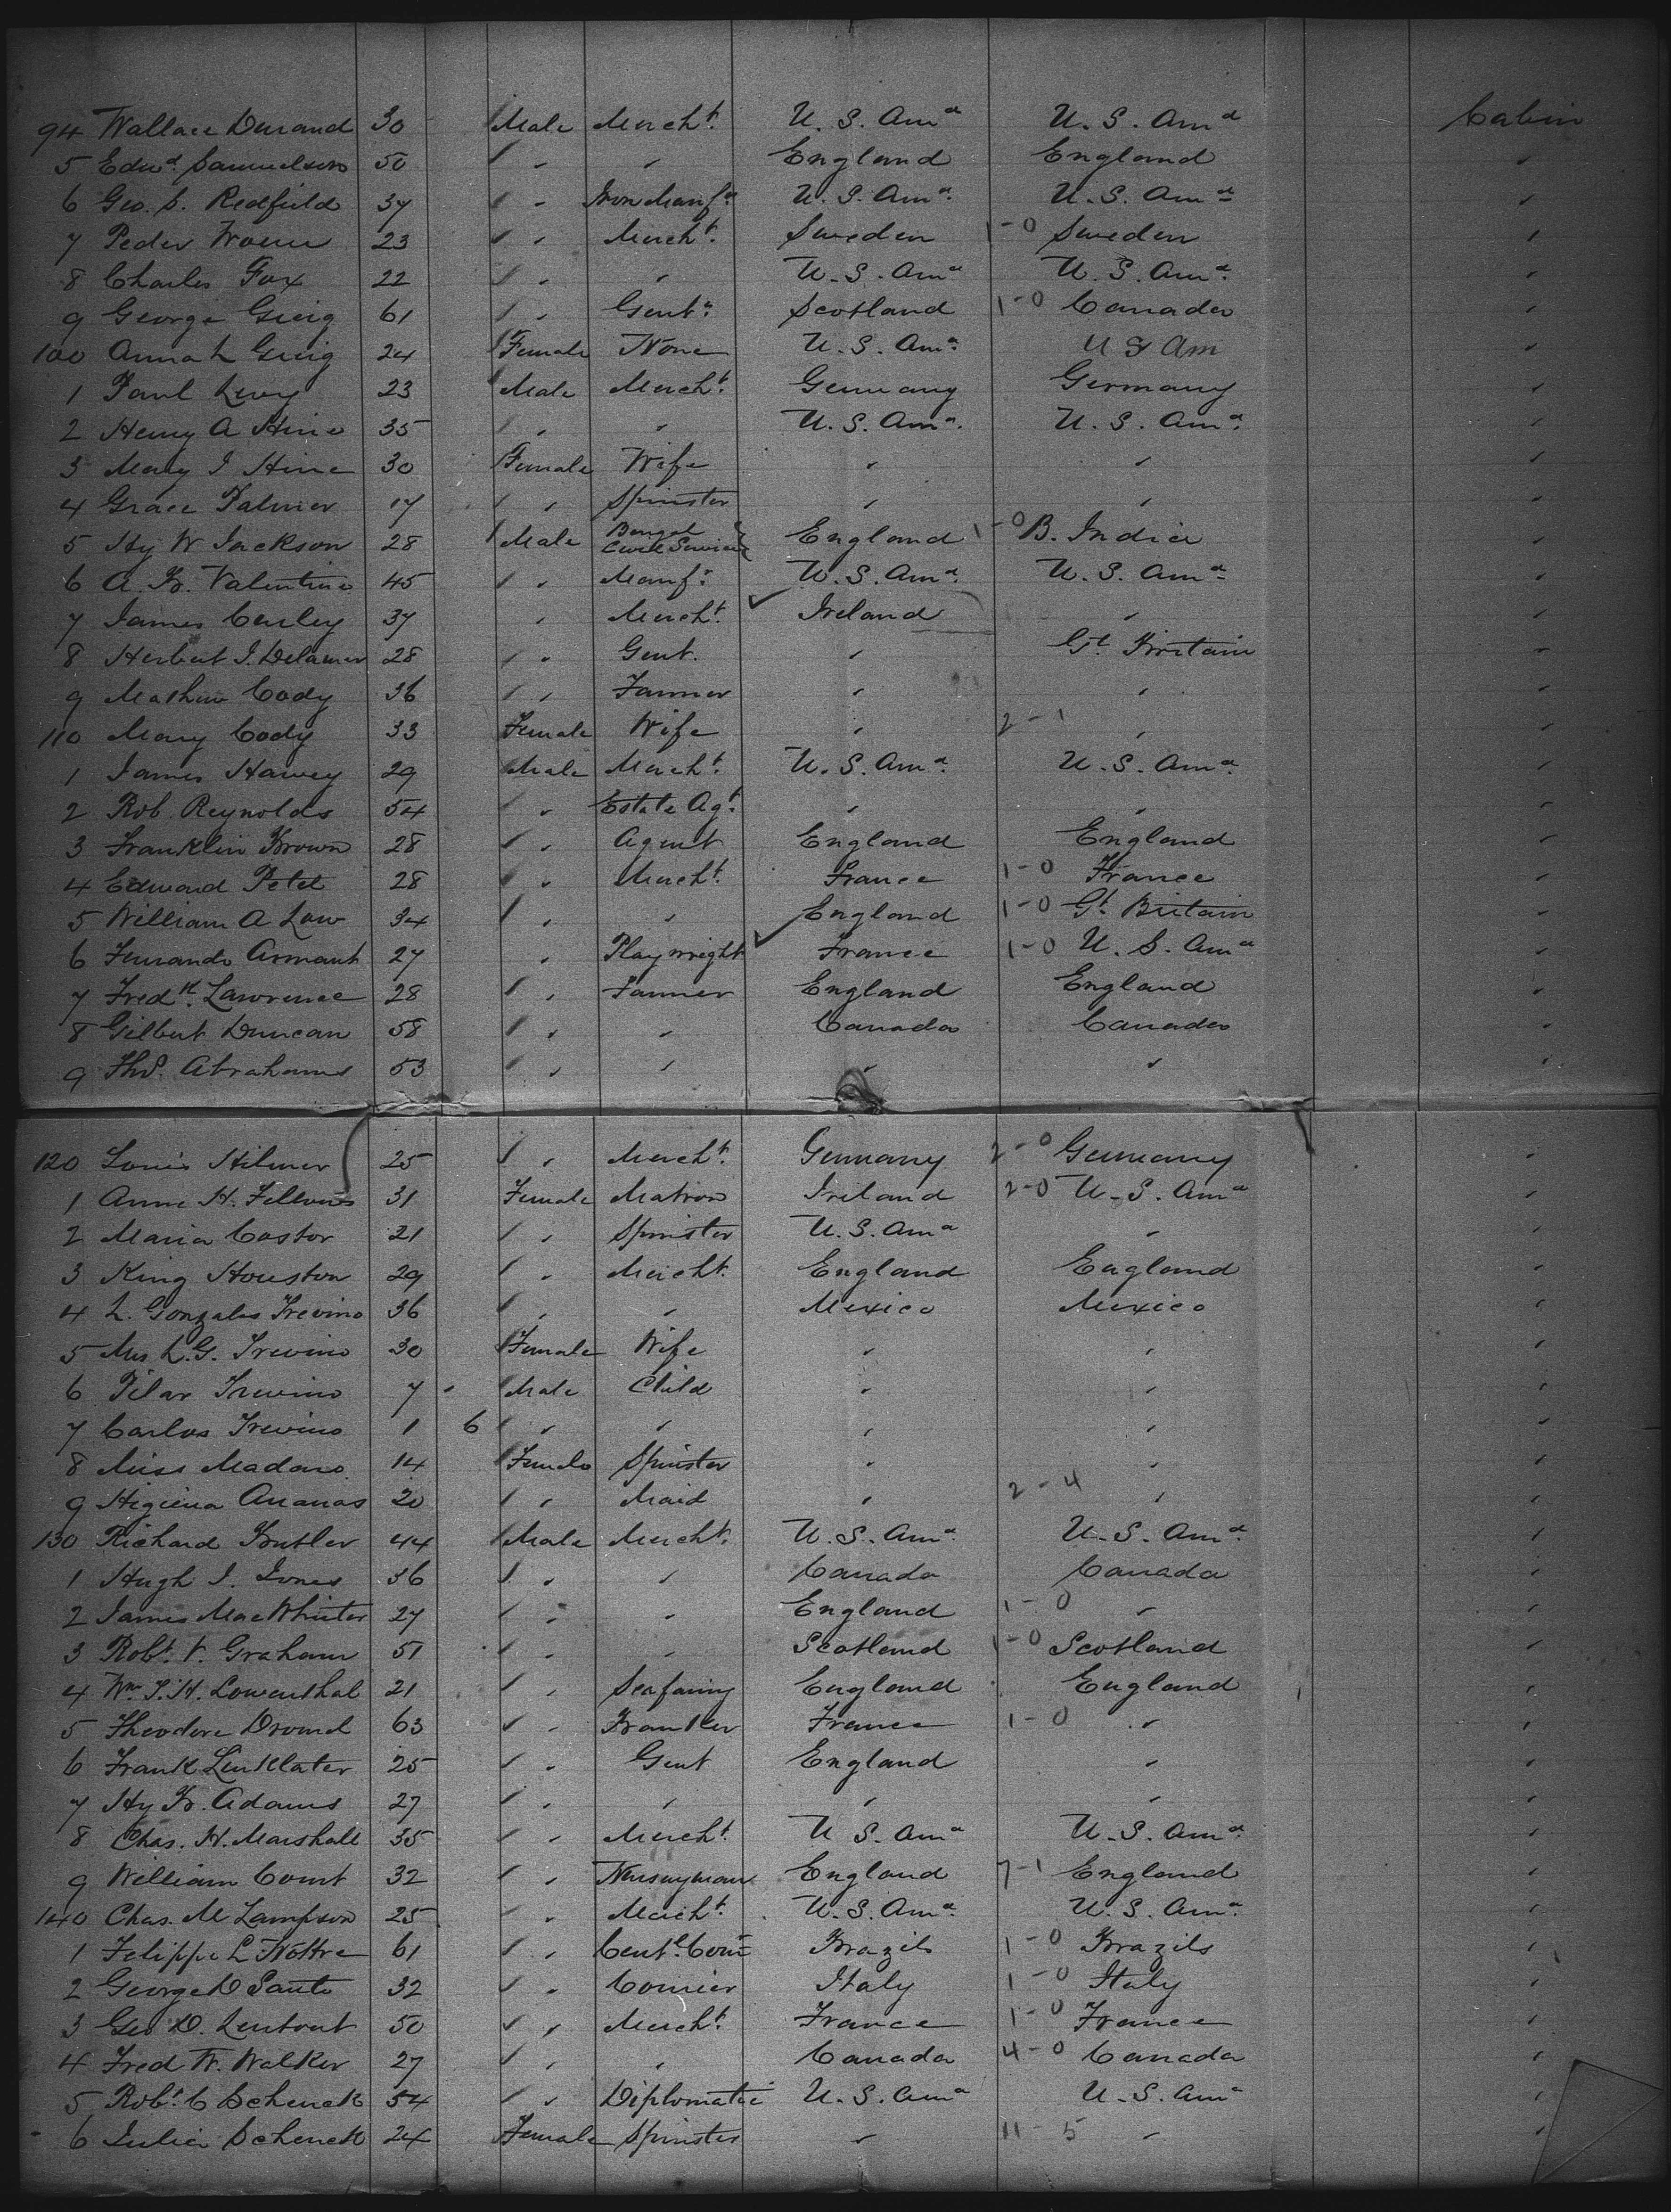 94 Wallace Durand 30 Male Mercht. U. S. Ama U. S. Ama Cabin
5 Edwd. Samuelson 50 " " " England England "
6 Geo. S. Redfield 37 " " Iron Manfr. U. S. Ama. U. S. Ama "
7 Peder 23 " " Mercht. Sweden 1-0 Sweden "
8 Charles Fox 22 " " " U. S. Ama U. S. Ama. "
9 George Greig 61 " " Gentn. Scotland 1-0 Canada "
100 Anna L Greig 24 Female None U. S. Ama. U S Am "
1 Paul Levy 23 Male Mercht. Germany Germany "
2 Henry A Hine 35 " " " U. S. Ama. U. S. Ama. "
3 Mary I Hine 30 Female Wife " " "
4 Grace Palmer 17 " " Spinster " " "
5 Hy W Jackson 28 Male Bengal Civil Service England 1-0 B. India "
6 A. B. Valentine 45 " " Manfr. U. S. Ama. U. S. Ama. "
7 James Curley 37 " Mercht. Ireland " "
8 Herbert I. Delamer 28 " " Gent. " Gt. Britain "
9 Mathew Cody 36 " " Farmer " " "
110 Mary Cody 33 Female Wife " 2-1 " "
1 James Harvey 29 Male Mercht. U. S. Ama. U. S. Ama. "
2 Rob Reynolds 54 " " Estate Agt. " " "
3 Franklin Brown 28 " " Agent England England "
4 Edward Petit 28 " " Mercht. France 1-0 France "
5 William A Law 34 " " " England 1-0 Gt. Britain "
6 Fernando Armant 27 " Playwright France 1-0 U. S. Ama "
7 Fredk. Lawrence 28 " " Farmer England England "
8 Gilbert Duncan 58 " " " Canada Canada "
9 Thos. Abrahams 53 " " " " " "
120 Louis Hilmer 25 " " Mercht. Germany 2-0 Germany "
1 Anne H. Fellows 31 Female Matron Ireland 2-0 U. S. Ama "
2 Maria Castor 21 " " Spinster U. S. Ama " "
3 King Houston 29 " " Mercht. England England "
4 L. Gonzales Trevino 36 " " " Mexico Mexico "
5 Mrs L. G. Trevino 30 Female Wife " " "
6 Pilar Trevino 7 Male Child " " "
7 Carlos Trevino 1 6 " " " " " "
8 Miss Madaro 14 Female Spinster " " "
9 Higiena Ananas 20 " " Maid " 2-4 " "
130 Richard Butler 44 Male Mercht. U. S. Ama. U. S. Ama. "
1 Hugh I. Jones 36 " " " Canada Canada "
2 James MacWhirter 27 " " " England 1-0 " "
3 Robt. V. Graham 51 " " " Scotland 1-0 Scotland "
4 Wm. I. H. Lowenthal 21 " " Seafaring England England "
5 Theodore Dromel 63 " " Banker France 1-0 " "
6 Frank Linklater 25 " " Gent England " "
7 Hy B. Adams 27 " " " " " "
8 Chas. H. Marshall 35 " " Mercht. U S. Ama U. S. Ama. "
9 William Count 32 " " Nurseyman England 7-1 England "
140 Chas. M Lampson 25 " " Mercht. U. S. Ama. U. S. Ama. "
1 Felippe L 61 " " Brazils 1-0 Brazils "
2 George D Santo 32 " " Courier Italy 1-0 Italy "
3 Geo D. 50 " " Mercht. France 1-0 France "
4 Fred W. Walker 27 " " " Canada 4-0 Canada "
5 Robt. C Schenck 54 " " Diplomatic U. S. Ama U. S. Ama "
6 Julia Schenck 24 Female Spinster " 11-5 " "